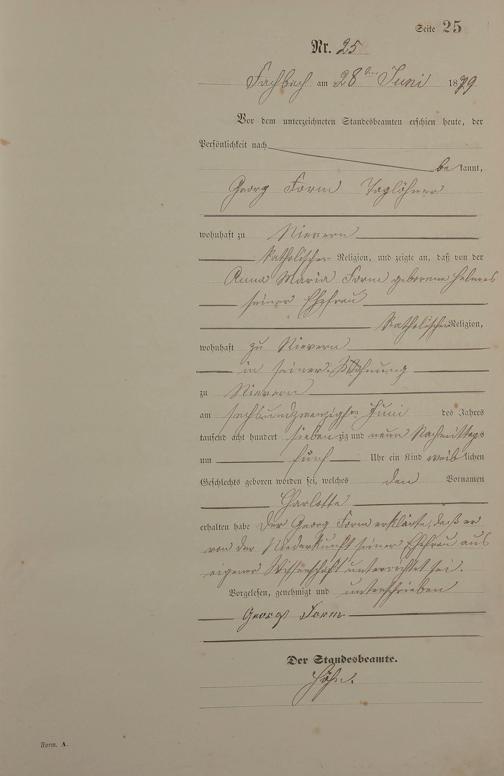 Seite 25
Nr. 25
Fachbach am 28ten Juni 1879
Vor dem unterzeichneten Standesbeamten erschien heute, der
Persönlichkeit nach
bekannt,
Georg Form Taglöhner
wohnhaft zu Nievern
katholischer Religion, und zeigte an, daß von der
Anna Maria Form geborene
seiner Ehefrau
katholischer Religion,
wohnhaft zu Nievern
in seiner Wohnung
zu Nievern
am sechsundzwanzigsten Juni des Jahres
tausend acht hundert siebenzig und neun Nachmittags
um fünf Uhr ein Kind weiblichen
Geschlechts geboren worden sei, welches den Vornamen
Charlotte
erhalten habe Der Georg Form erklärte, daß er
von der Niederkunft seiner Ehefrau aus
eigener Wissenschaft unterrichtet sei.
Vorgelesen, genehmigt und unterschrieben
Georg Form
Der Standesbeamte.
Höhn.
Form. A.